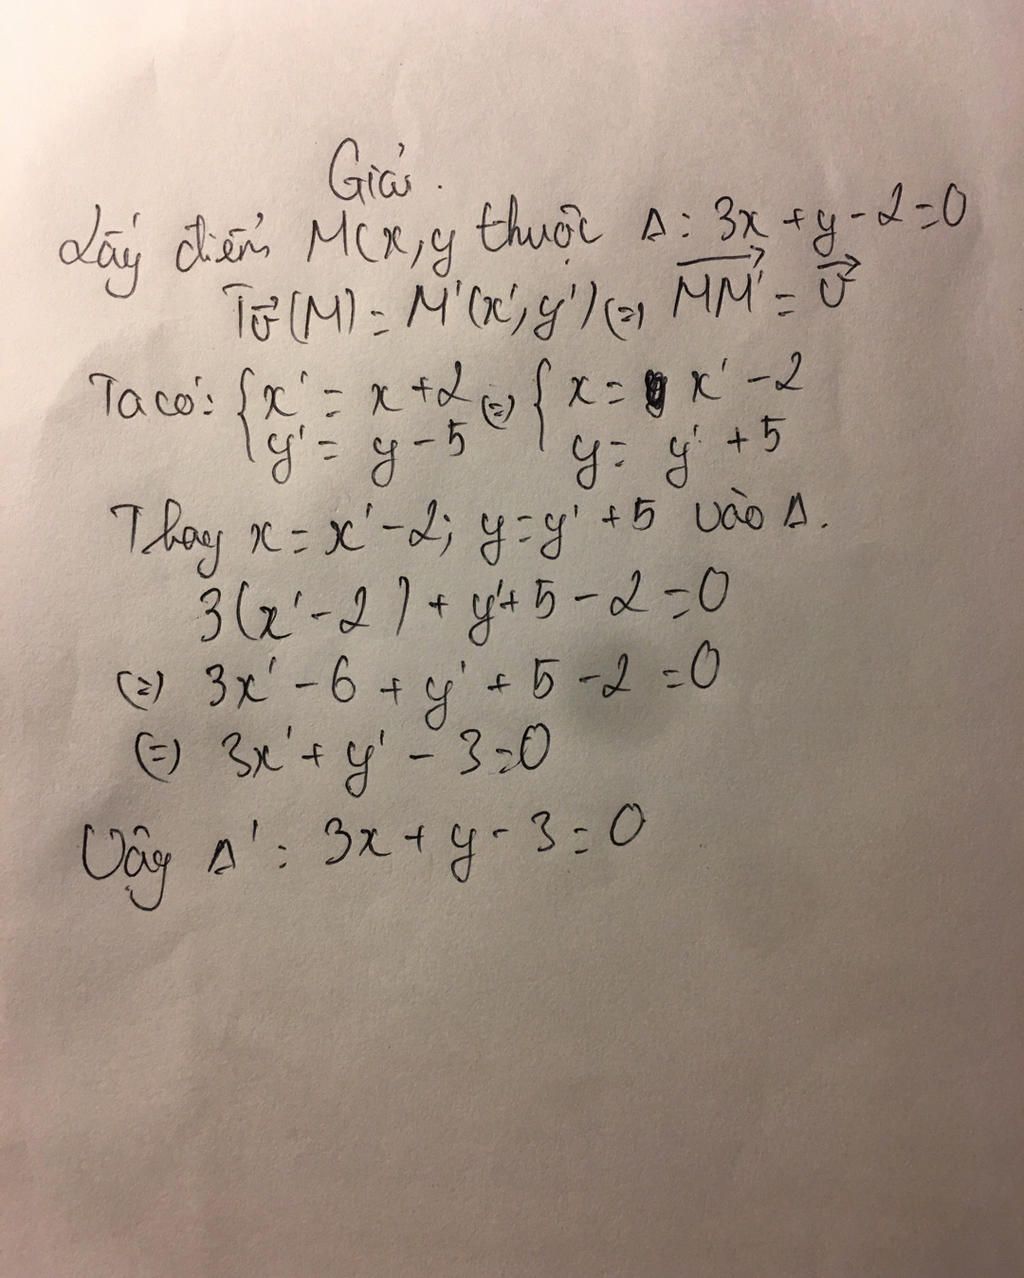 Giải.
Lấy điểm M(x,y thuộc Δ: 3x + y - 2 = 0
Tv⃗(M) = M'(x', y') (=) MM'⃗ = v⃗
Ta có: { x' = x + 2 (=) { x = x' - 2
y' = y - 5 y = y' + 5
Thay x = x' - 2; y = y' + 5 vào Δ.
3(x' - 2) + y' + 5 - 2 = 0
(=) 3x' - 6 + y' + 5 - 2 = 0
(=) 3x' + y' - 3 = 0
Vậy Δ' : 3x + y - 3 = 0